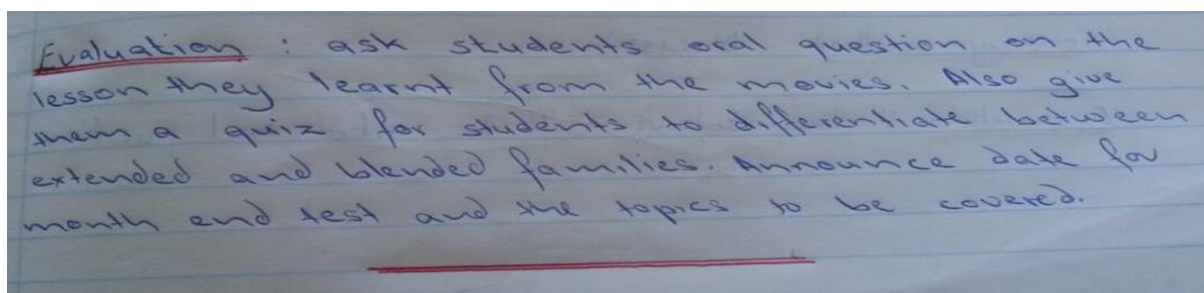 Evaluation : ask students oral question on the
lesson they learnt from the movies. Also give
them a quiz for students to differentiate between
extended and blended families. Announce date for
month end test and the topics to be covered.